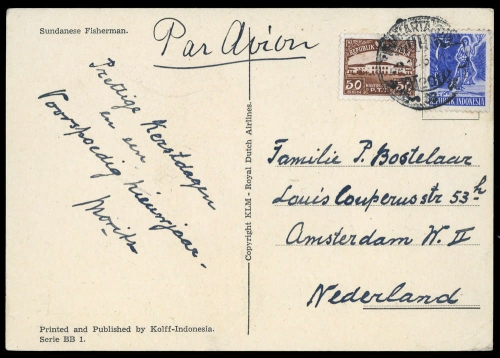 Sundanese Fisherman.
Par Avion
Prettige Kerstdagen
en een
Voorspoedig Nieuwjaar.
Morits
Copyright KLM - Royal Dutch Airlines.
REPUBLIK
50 50
P.T.T.
REPUBLIK INDONESIA
Familie P. Bostelaar
Louis Couperusstr 53 h
Amsterdam W. II
Nederland
Printed and Published by Kolff-Indonesia.
Serie BB 1.